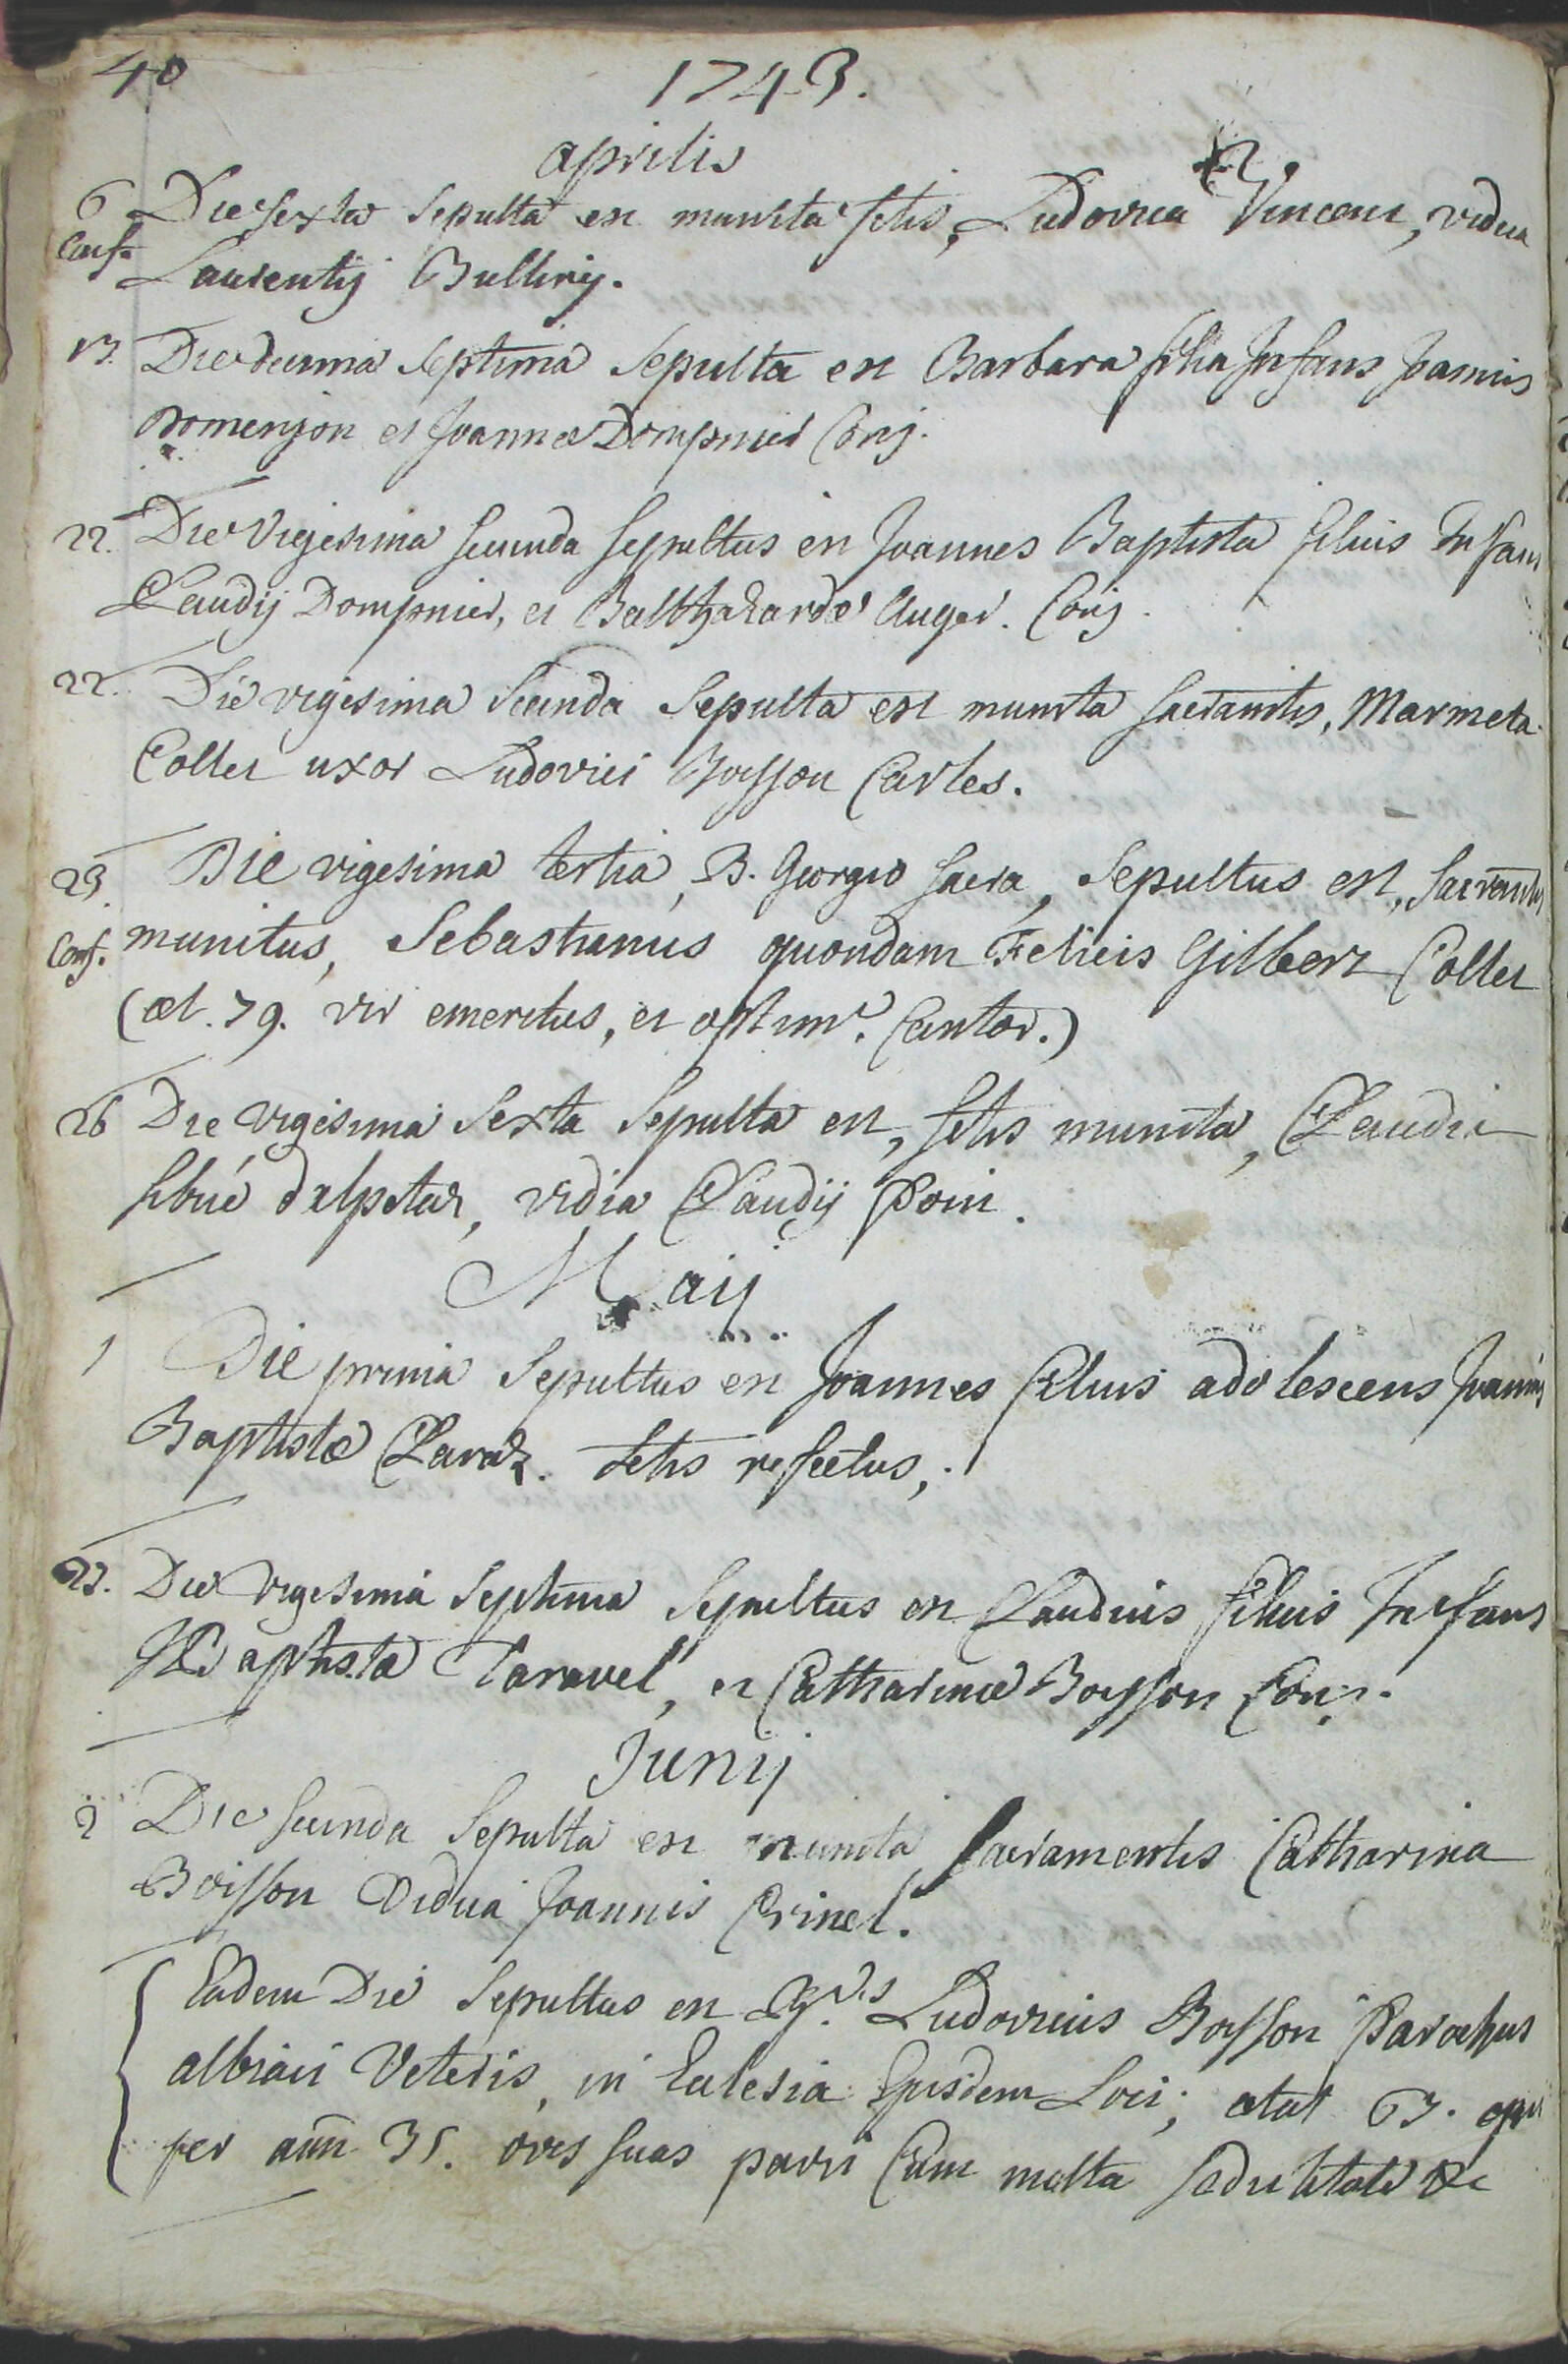 40
1743.
aprilis
6 Die sexta sepulta est munita sctis, Ludovica Vincent, vidua
Conf. Laurentij Bulliry.
17. Die decima septima sepulta est Barbara filia Infans Joannis
Domenjon et Joannæ Dompnier Conj.
22. Die Vigesima secunda sepultus est Joannes Baptista filius Infans
Claudij Dompnier, et Balthazardæ Auger. Conj.
22. Die vigesima secunda sepulta est munita sacramtis, Marmeta
Collet uxor Ludovici Boisson Carles.
23. Die vigesima tertia, B. Georgio sacra, sepultus est, sacramtis
Conf. munitus, Sebastianus quondam Felicis Gilbert Collet
(æt. 79. vir emeritus, et optims. Cantor.)
26 Die vigesima sexta sepulta est, sctis munita, Claudia
sibué dalpetaz, vidua Claudij Poin.
Maij
1 Die prima sepultus est Joannes filius adolescens Joannis
Baptistæ Claraz. sctis refectus,
27. Die vigesima septima sepultus est Claudius filius Infans
J Baptistæ Taravel, et Catharinæ Boisson Conj.
Junij
2 Die secunda sepulta est munita sacramentis Catharina
Boisson vidua Joannis Crinel.
Eadem Die sepultus est Rds. Ludovicus Boisson Parochus
albiaci Veteris, in Ecclesia Ejusdem Loci; ætat 63. qui
per ann 35. oves suas pavit Cum multa sedulitate &c